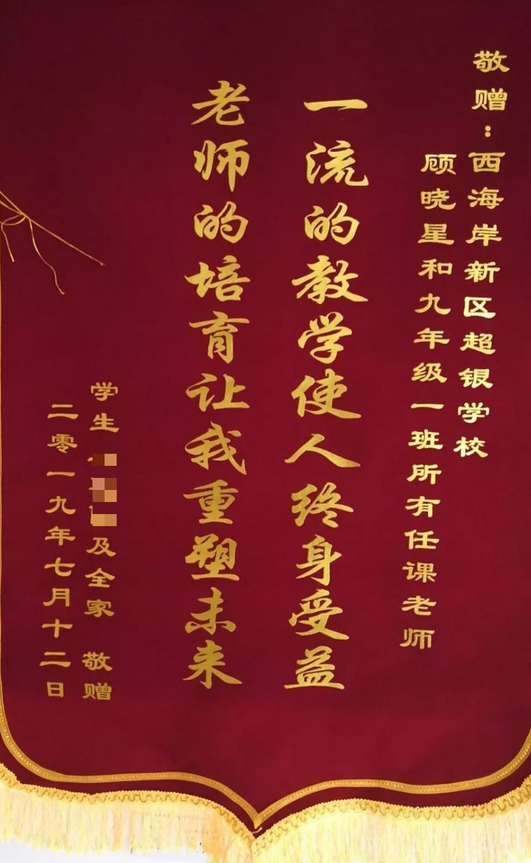 敬赠：西海岸新区超银学校
顾晓星和九年级一班所有任课老师
一流的教学使人终身受益
老师的培育让我重塑未来
学生 及全家 敬赠
二零一九年七月十二日